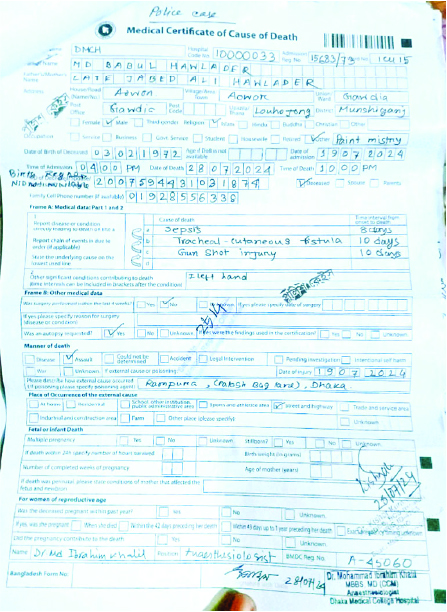 Police case
Medical Certificate of Cause of Death
DMCH Hospital Code No 10000033 Admission Reg. No. 15683/73 ICU 15
MD BABUL HAWLADER
LATE JABED ALI HAWLADER
Gawdia
Post Office Gawdia Post Code Louhojong Munshigonj
Female Male Third gender Religion Islam Hindu Buddhist Christian Other
Occupation Service Business Love Service Student Housewife Retired Other Paint mistry
Date of Birth of Deceased 03021972 Age if DoB not available Date of admission 19072024
Time of Admission 04:00 PM Date of Death 28072024 Time of Death 10:00 PM
Birth Reg No
NID No 20075944310318 74 Deceased Spouse Parents
Family Cell Phone Number (if available) 01928556338
Frame A: Medical data: Part 1 and 2
Cause of death Time interval from onset to death
Report disease or condition directly leading to death on line a a Sepsis 8 days
Report chain of events in due to order (if applicable) b Tracheal-cutaneous fistula 10 days
State the underlying cause on the lowest used line c Gun Shot injury 10 days
d
Other significant conditions contributing to death (time intervals can be included in brackets after the condition)
Frame B: Other medical data
Was surgery performed within the last 4 weeks? Yes No Unknown If yes please specify date of surgery
If yes please specify reason for surgery (disease or condition)
Was an autopsy requested? Yes No Unknown If yes were the findings used in the certification? Yes No Unknown
Manner of death
Disease Assault Could not be determined Accident Legal Intervention Pending investigation Intentional self harm
War Unknown If external cause or poisoning Date of injury 19072024
Please describe how external cause occurred (if poisoning please specify poisoning agent) Rampura, Dhaka
Place of Occurrence of the external cause
At home Residential School, other institution, public administrative area Sports and athletic area Street and highway Trade and service area
Industrial and construction area Farm Other place (please specify) Unknown
Fetal or infant Death
Multiple pregnancy Yes No Unknown Stillborn? Yes No Unknown
If death within 24h specify number of hours survived Birth weight (in grams)
Number of completed weeks of pregnancy Age of mother (years)
If death was perinatal, please state conditions of mother that affected the fetus and newborn
For women of reproductive age
Was the deceased pregnant within past year? Yes No Unknown
If yes, was she pregnant When she died Within the 42 days preceding her death Within 43 days up to 1 year preceding her death Unknown
Did the pregnancy contribute to the death? Yes No Unknown
Name Dr Md Ibrahim Khalil Position Anaesthesiologist BMDC Reg. No. A-45060
Bangladesh Form No 28/07/24
Dr. Mohammad Ibrahim Khalil
MBBS, MD (CCM)
Anaesthesiologist
Dhaka Medical College Hospital